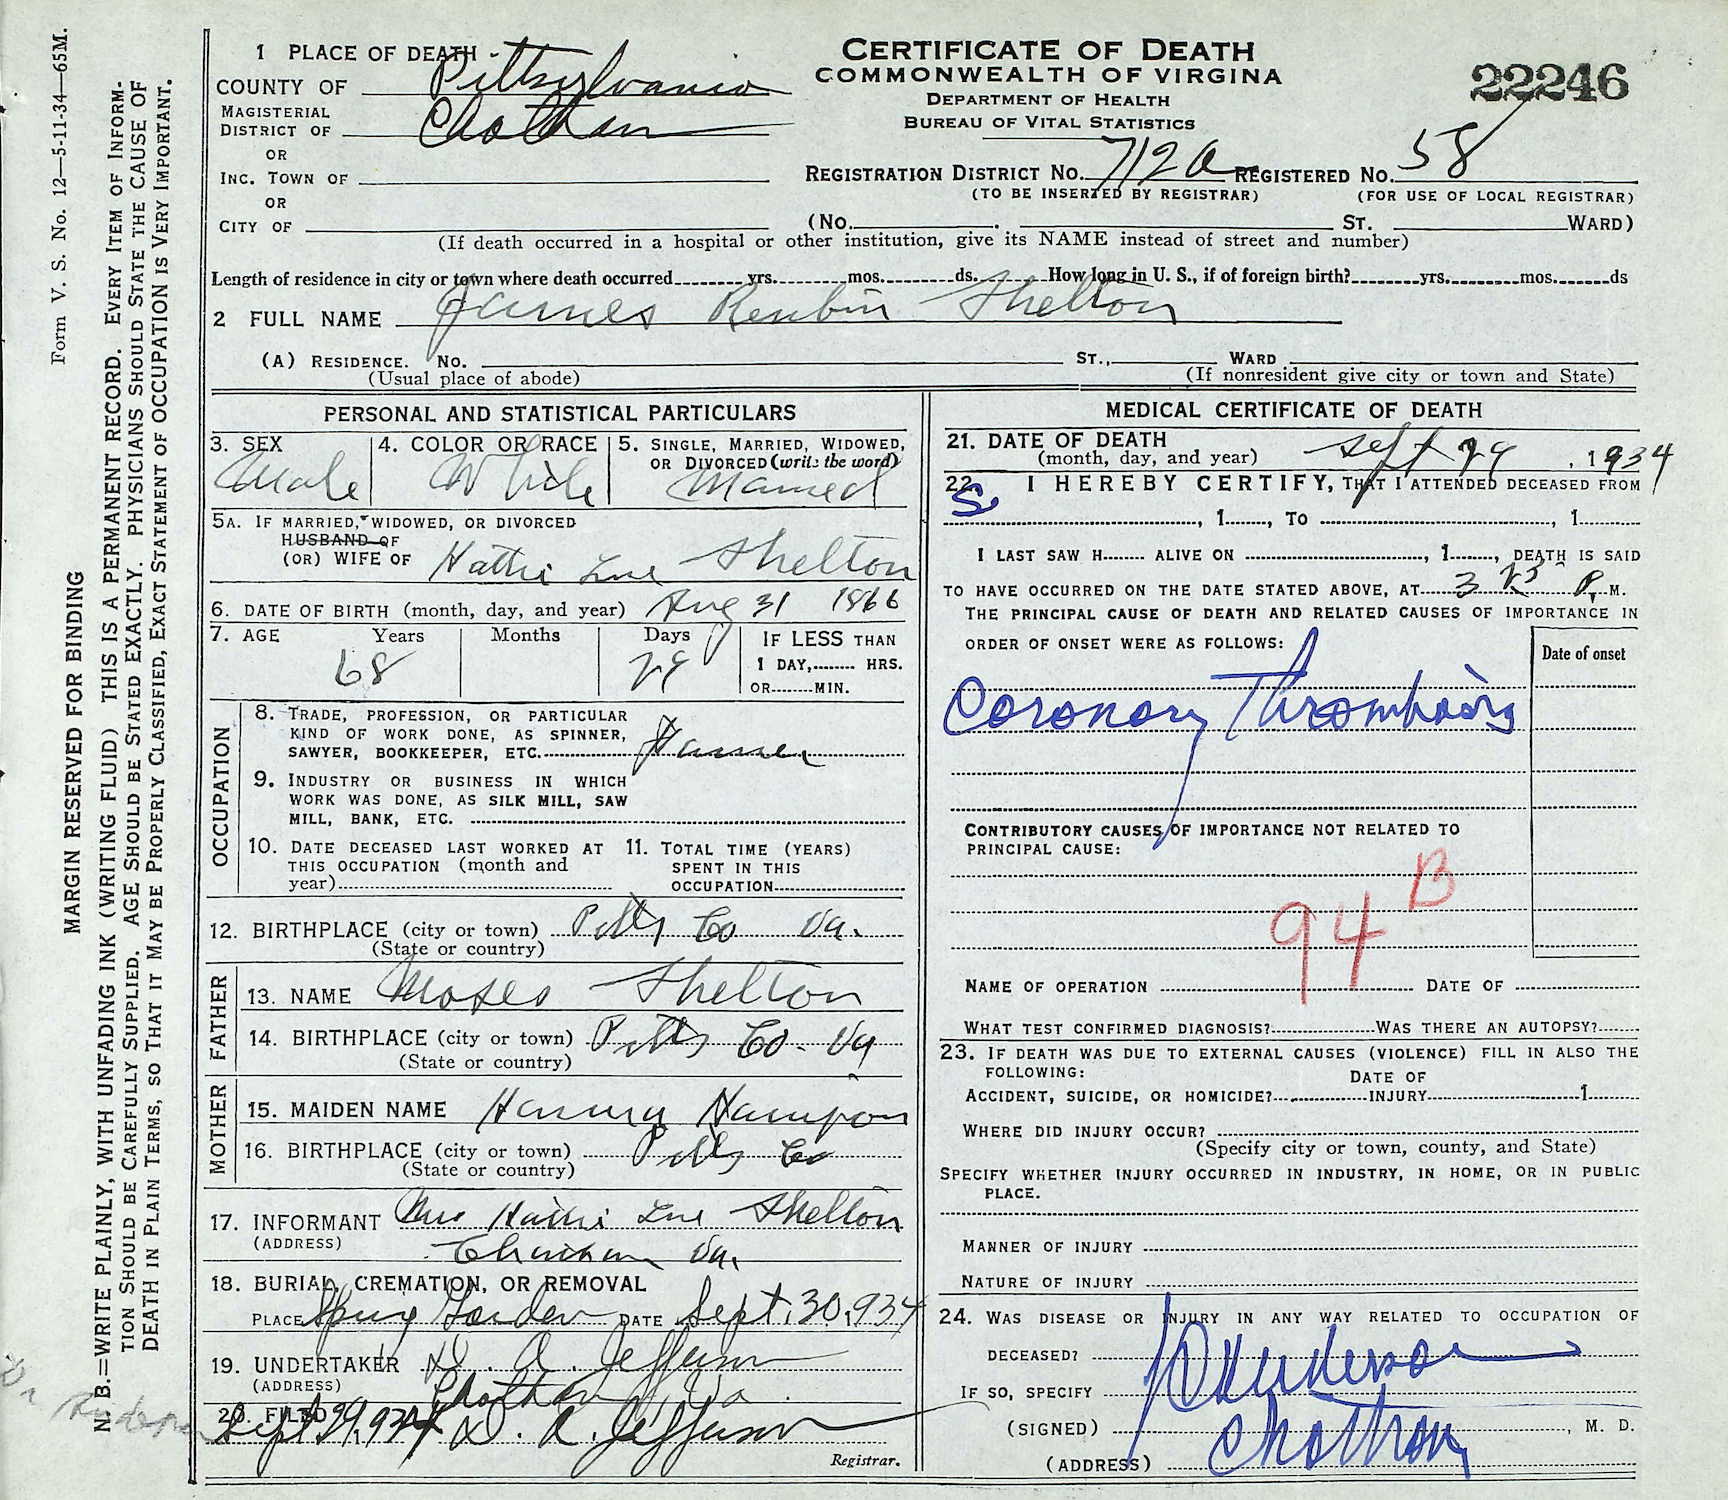 Form V. S. No. 12—5-11-34—65M.
MARGIN RESERVED FOR BINDING
N. B.=WRITE PLAINLY, WITH UNFADING INK (WRITING FLUID) THIS IS A PERMANENT RECORD. EVERY ITEM OF INFORM-
TION SHOULD BE CAREFULLY SUPPLIED. AGE SHOULD BE STATED EXACTLY. PHYSICIANS SHOULD STATE THE CAUSE OF
DEATH IN PLAIN TERMS, SO THAT IT MAY BE PROPERLY CLASSIFIED, EXACT STATEMENT OF OCCUPATION IS VERY IMPORTANT.
CERTIFICATE OF DEATH
COMMONWEALTH OF VIRGINIA
DEPARTMENT OF HEALTH
BUREAU OF VITAL STATISTICS
22246
1 PLACE OF DEATH
COUNTY OF Pittsylvania
MAGISTERIAL
DISTRICT OF Chatham
OR
INC. TOWN OF
OR
CITY OF
REGISTRATION DISTRICT NO. 712a REGISTERED NO. 58
(TO BE INSERTED BY REGISTRAR) (FOR USE OF LOCAL REGISTRAR)
(NO. ST. WARD)
(If death occurred in a hospital or other institution, give its NAME instead of street and number)
Length of residence in city or town where death occurred yrs. mos. ds. How long in U. S., if of foreign birth? yrs. mos. ds
2 FULL NAME James Reubin Shelton
(A) RESIDENCE. NO. ST., WARD
(Usual place of abode) (If nonresident give city or town and State)
PERSONAL AND STATISTICAL PARTICULARS
3. SEX 4. COLOR OR RACE 5. SINGLE, MARRIED, WIDOWED,
OR DIVORCED (write the word)
Male White Married
5A. IF MARRIED, WIDOWED, OR DIVORCED
HUSBAND OF
(OR) WIFE OF Hattie Lue Shelton
6. DATE OF BIRTH (month, day, and year) Aug 31 1866
7. AGE Years Months Days IF LESS THAN
1 DAY, HRS.
OR MIN.
68 29
OCCUPATION
8. TRADE, PROFESSION, OR PARTICULAR
KIND OF WORK DONE, AS SPINNER,
SAWYER, BOOKKEEPER, ETC. Farmer
9. INDUSTRY OR BUSINESS IN WHICH
WORK WAS DONE, AS SILK MILL, SAW
MILL, BANK, ETC.
10. DATE DECEASED LAST WORKED AT 11. TOTAL TIME (YEARS)
THIS OCCUPATION (month and SPENT IN THIS
year) OCCUPATION
12. BIRTHPLACE (city or town) Pitts Co Va.
(State or country)
FATHER
13. NAME Moses Shelton
14. BIRTHPLACE (city or town) Pitts Co. Va
(State or country)
MOTHER
15. MAIDEN NAME
16. BIRTHPLACE (city or town) Pitts Co
(State or country)
17. INFORMANT Mrs Hattie Lue Shelton
(ADDRESS) Chatham Va.
18. BURIAL, CREMATION, OR REMOVAL
PLACE Spring Garden DATE Sept. 30, 934
19. UNDERTAKER D. A. Jefferson
(ADDRESS) Chatham, Va.
20. FILED Sept 29, 934 D. A. Jefferson
Registrar.
MEDICAL CERTIFICATE OF DEATH
21. DATE OF DEATH
(month, day, and year) Sept 29, 1934
22. I HEREBY CERTIFY, THAT I ATTENDED DECEASED FROM
S
, 1 , TO , 1
I LAST SAW H ALIVE ON , 1 , DEATH IS SAID
TO HAVE OCCURRED ON THE DATE STATED ABOVE, AT 3 P. M.
THE PRINCIPAL CAUSE OF DEATH AND RELATED CAUSES OF IMPORTANCE IN
ORDER OF ONSET WERE AS FOLLOWS: Date of onset
Coronary Thrombosis
CONTRIBUTORY CAUSES OF IMPORTANCE NOT RELATED TO
PRINCIPAL CAUSE:
94 B
NAME OF OPERATION DATE OF
WHAT TEST CONFIRMED DIAGNOSIS? WAS THERE AN AUTOPSY?
23. IF DEATH WAS DUE TO EXTERNAL CAUSES (VIOLENCE) FILL IN ALSO THE
FOLLOWING:
DATE OF
ACCIDENT, SUICIDE, OR HOMICIDE? INJURY 1
WHERE DID INJURY OCCUR?
(Specify city or town, county, and State)
SPECIFY WHETHER INJURY OCCURRED IN INDUSTRY, IN HOME, OR IN PUBLIC
PLACE.
MANNER OF INJURY
NATURE OF INJURY
24. WAS DISEASE OR INJURY IN ANY WAY RELATED TO OCCUPATION OF
DECEASED?
IF SO, SPECIFY
(SIGNED) , M. D.
(ADDRESS) Chatham